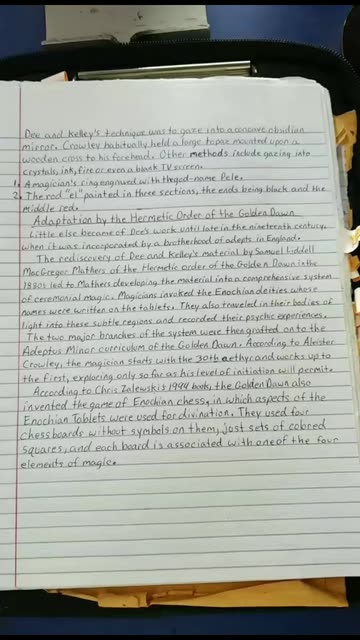 Dee and Kelley's technique was to gaze into a concave obsidian
mirror. Crowley habitually held a large topaz mounted upon a
wooden cross to his forehead. Other methods include gazing into
crystals, ink, fire or even a blank TV screen.
1. A magician's ring engraved with the god-name Pele.
2. The rod "el" painted in three sections, the ends being black and the
middle red.
Adaptation by the Hermetic Order of the Golden Dawn
Little else became of Dee's work until late in the nineteenth century,
when it was incorporated by a brotherhood of adepts in England.
The rediscovery of Dee and Kelley's material by Samuel Liddell
MacGregor Mathers of the Hermetic order of the Golden Dawn in the
1880s led to Mathers developing the material into a comprehensive system
of ceremonial magic. Magicians invoked the Enochian deities whose
names were written on the tablets. They also traveled in their bodies of
light into these subtle regions and recorded their psychic experiences.
The two major branches of the system were then grafted onto the
Adeptus Minor curriculum of the Golden Dawn. According to Aleister
Crowley, the magician starts with the 30th aethyr and works up
to the first, exploring only so far as his level of initiation will permit.
According to Chris Zalewski's 1994 book, the Golden Dawn also
invented the game of Enochian chess, in which aspects of the
Enochian Tablets were used for divination. They used four
chessboards without symbols on them, just sets of colored
squares, and each board is associated with one of the four
elements of magic.